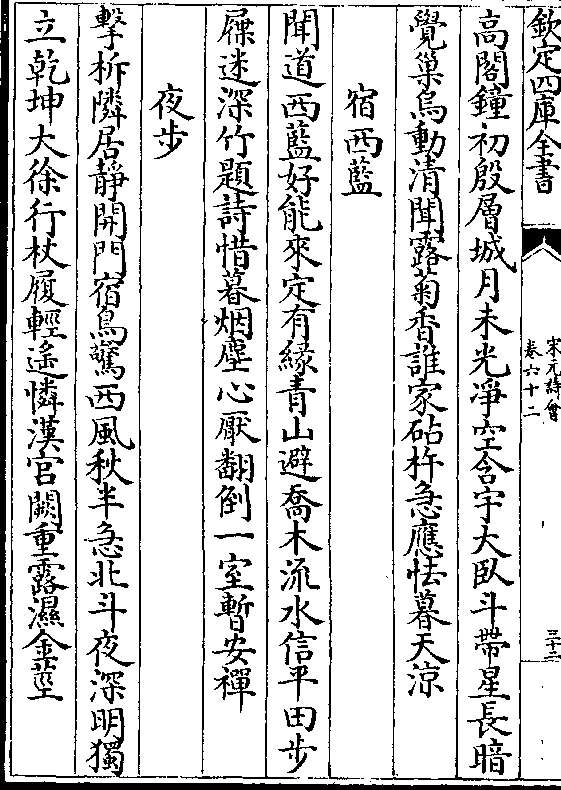 欽定四庫全書
宋元詩會
卷六十二
三十二
高閣鐘初殷層城月未光淨空含宇大臥斗帶星長暗
覺巢烏動清聞露菊香誰家砧杵急應怯暮天涼
宿西藍
聞道西藍好能來定有緣青山避喬木流水信平田步
屧迷深竹題詩惜暮烟塵心厭翻倒一室暫安禪
夜步
擊柝隣居靜開門宿鳥驚西風秋半急北斗夜深明獨
立乾坤大徐行杖履輕遙憐漢宮闕重露濕金莖